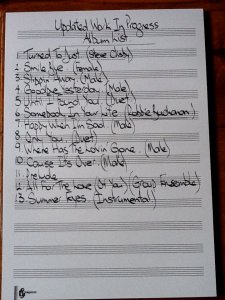 Updated Work In Progress
Album List
1. Turned To Dust (Steve Clash)
2. Smile Aye (Female)
3. Slippin' Away. (Male)
4. Goodbye Yesterday (Male)
5. Until I Found You (Duet)
6. Somebody In Your Life (Robbie Buchanan)
7. Happy When I'm Sad. (Male)
8. Only You. (Duet)
9. Where Has The Lovin' Gone. (Male)
10. Cause It's Over (Male)
11. Prelude
12. All For The Love (Of You) (Group Ensemble)
13. Summer Eyes (Instrumental)